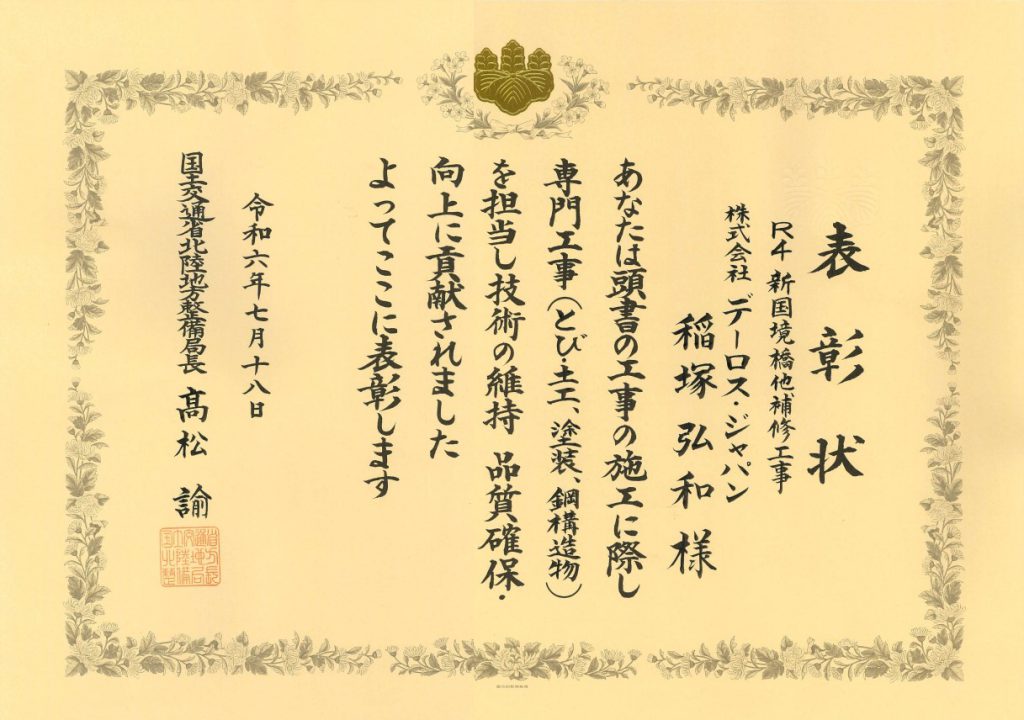 表彰状
R4 新国境橋他補修工事
株式会社 デーロス・ジャパン
稲塚弘和様
あなたは頭書の工事の施工に際し
専門工事(とび・土工、塗装、鋼構造物)
を担当し技術の維持 品質確保・
向上に貢献されました
よってここに表彰します
令和六年七月十八日
国土交通省北陸地方整備局長 髙松 諭